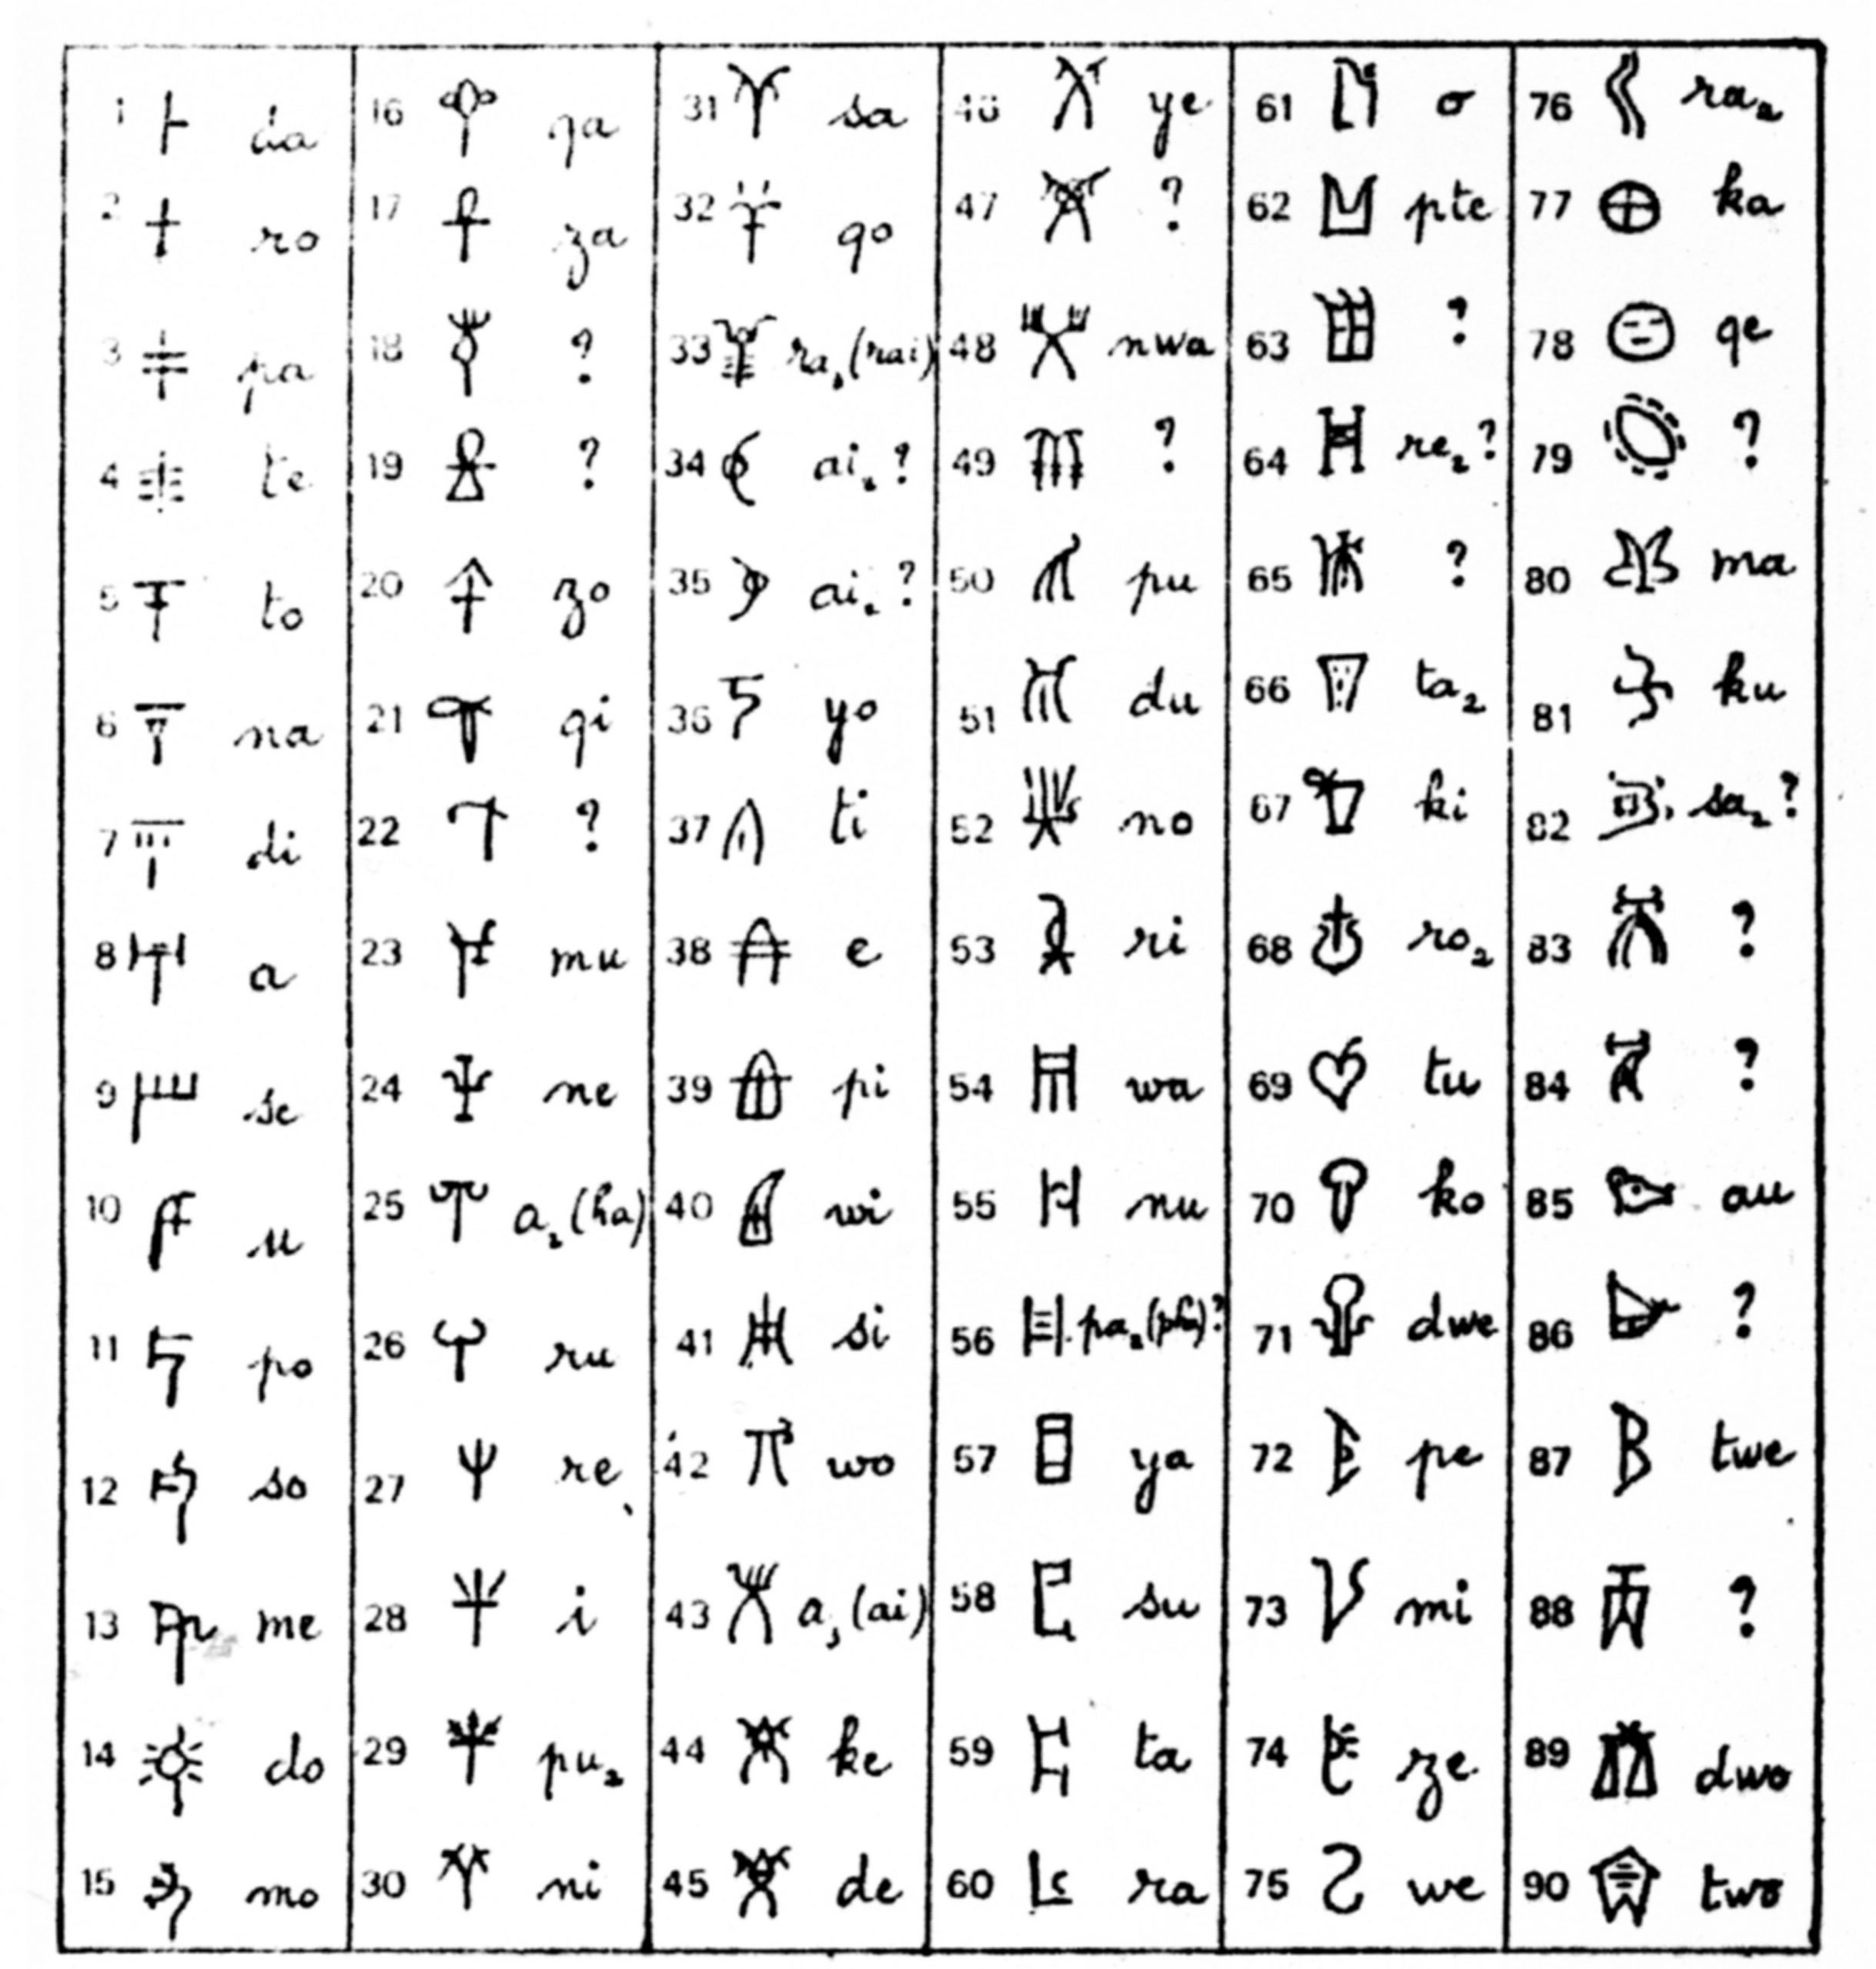 1 𐀅 da
2 𐀫 ro
3 𐀞 pa
4 𐀳 te
5 𐀵 to
6 𐀙 na
7 𐀇 di
8 𐀀 a
9 𐀮 se
10 𐀄 u
11 𐀡 po
12 𐀰 so
13 𐀕 me
14 𐀈 do
15 𐀗 mo
16 𐀣 qa
17 𐀼 za
18 𐁐 ?
19 𐁑 ?
20 𐀿 zo
21 𐀥 qi
22 𐁒 ?
23 𐀘 mu
24 𐀚 ne
25 𐁀 a₂(ha)
26 𐀬 ru
27 𐀩 re
28 𐀂 i
29 𐁆 pu₂
30 𐀛 ni
31 𐀭 sa
32 𐀦 qo
33 𐁉 ra₃(rai)
34 𐁓 ai₂?
35 ai₂?
36 𐀍 yo
37 𐀴 ti
38 𐀁 e
39 𐀠 pi
40 𐀹 wi
41 𐀯 si
42 𐀺 wo
43 𐁁 a₃(ai)
44 𐀐 ke
45 𐀆 de
46 𐀋 ye
47 𐁔 ?
48 𐁅 nwa
49 𐁕 ?
50 𐀢 pu
51 𐀉 du
52 𐀜 no
53 𐀪 ri
54 𐀷 wa
55 𐀝 nu
56 𐁖 pa₂(pha)?
57 𐀊 ya
58 𐀱 su
59 𐀲 ta
60 𐀨 ra
61 𐀃 o
62 𐁇 pte
63 𐁗 ?
64 𐁘 re₂?
65 𐀎 ?
66 𐁋 ta₂
67 𐀑 ki
68 𐁊 ro₂
69 𐀶 tu
70 𐀒 ko
71 𐁃 dwe
72 𐀟 pe
73 𐀖 mi
74 𐀽 ze
75 𐀸 we
76 𐁈 ra₂
77 𐀏 ka
78 𐀤 qe
79 𐁙 ?
80 𐀔 ma
81 𐀓 ku
82 𐁚 sa₂?
83 𐁛 ?
84 ?
85 𐁂 au
86 𐁜 ?
87 𐁌 twe
88 ?
89 𐁄 dwo
90 𐁍 two